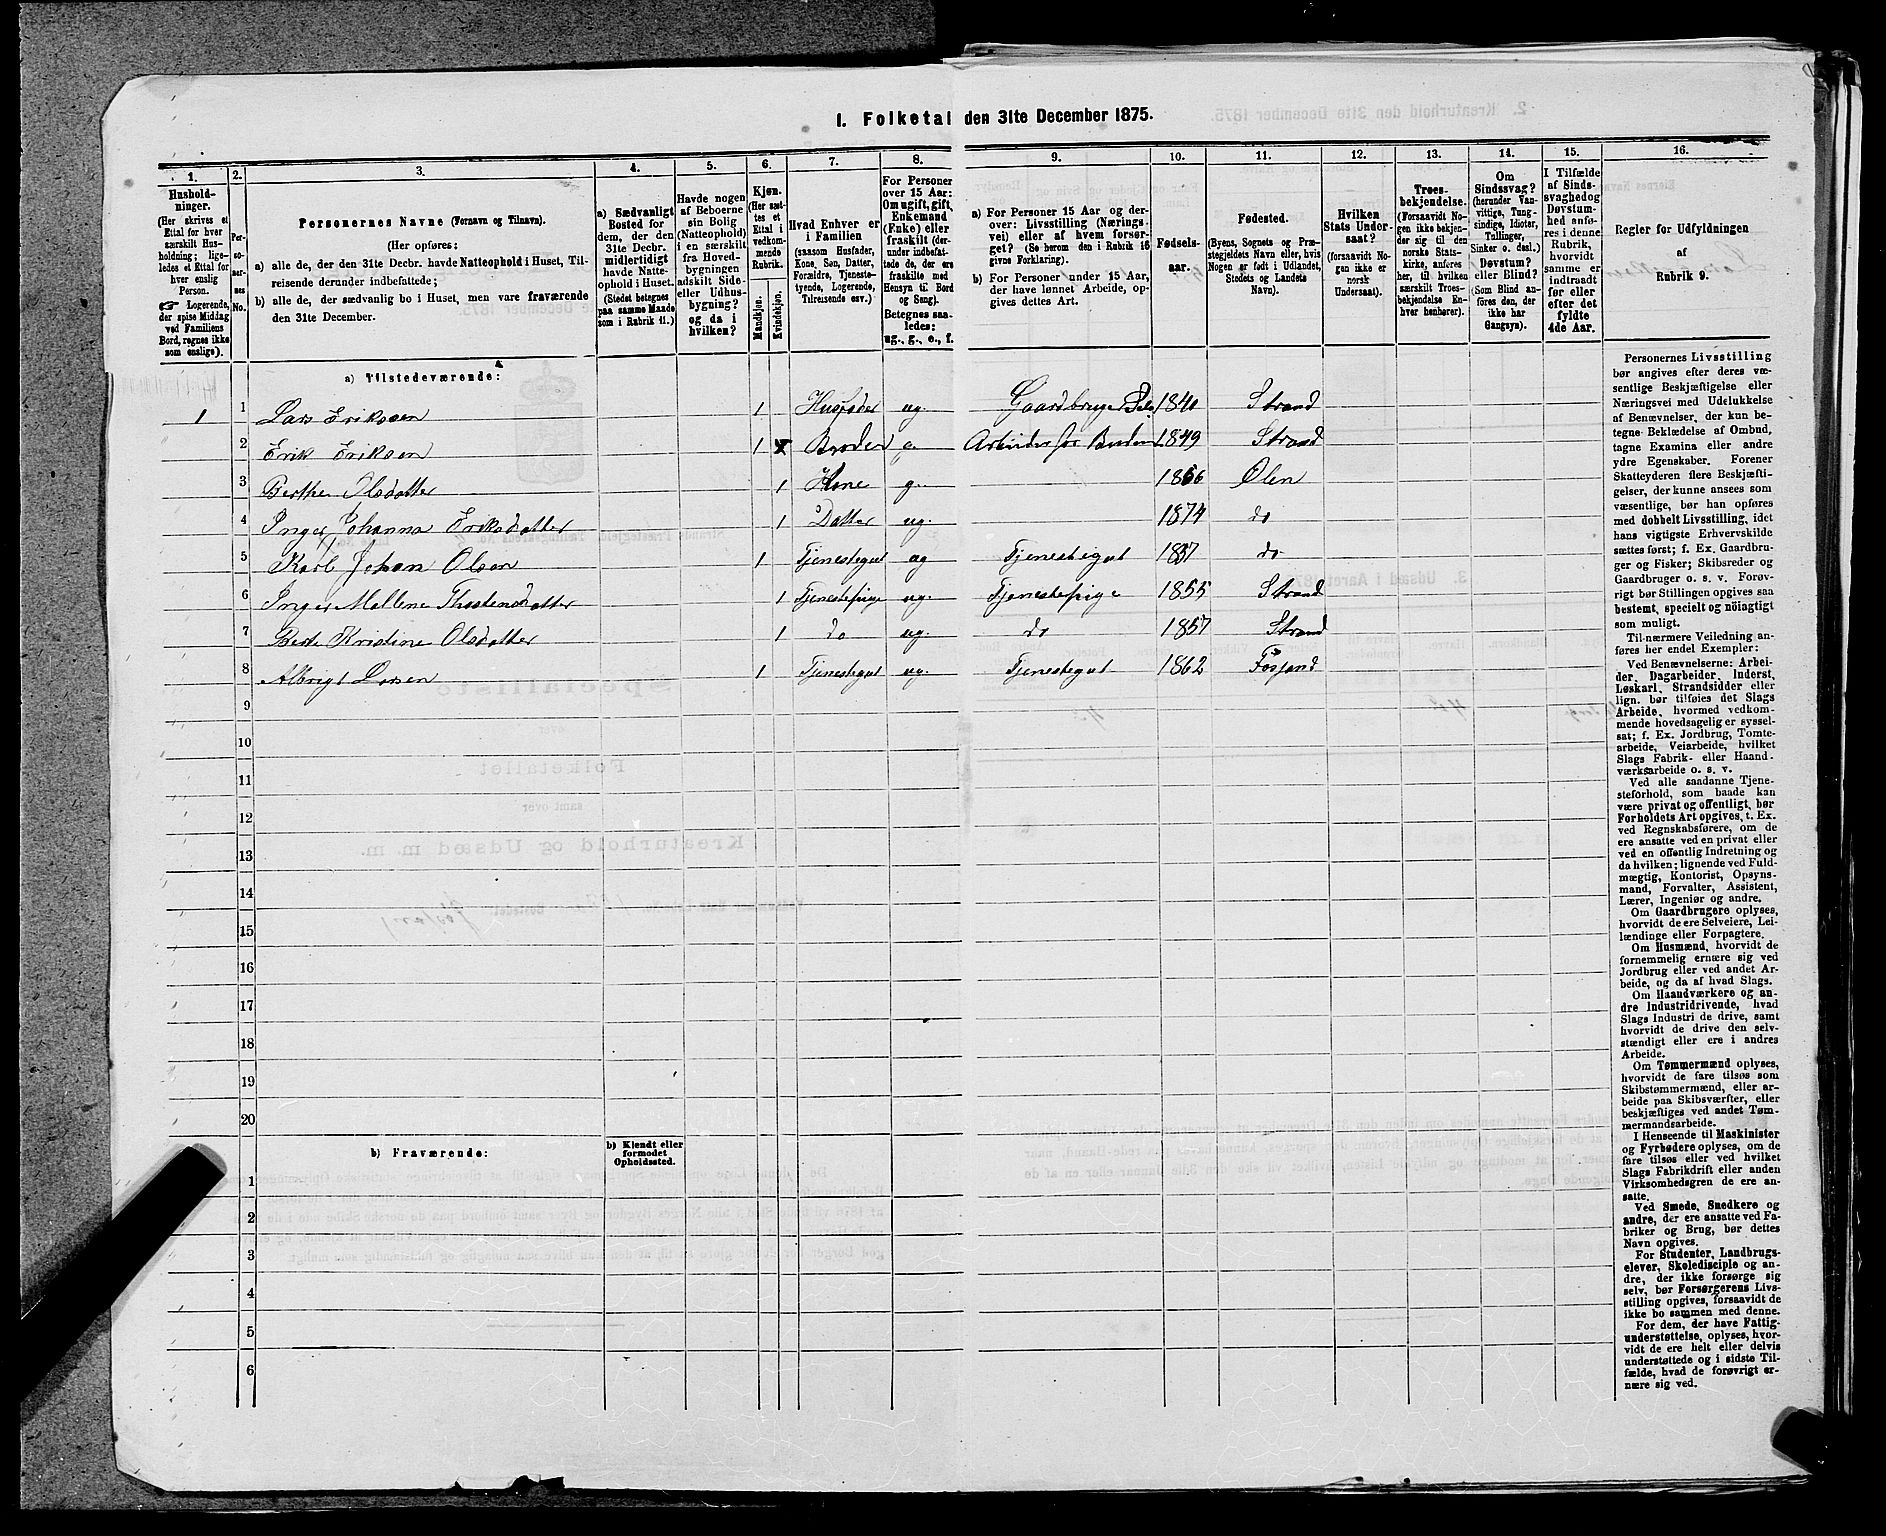 1. Folketal den 31te December 1875.
1. 2. 3. 4. 5. 6. 7. 8. 9. 10. 11. 12. 13. 14. 15. 16.
Hushold-
ninger.
(Her skrives et
Ettal for hver
særskilt Hus-
holdning; lige-
ledes et Ettal for
hver enslig
Person.
☞ Logerende,
der spise Middag
ved Familiens
Bord, regnes ikke
som enslige).
Per-
so-
ner-
nes
No.
Personernes Navne (Fornavn og Tilnavn).
(Her opføres:
a) alle de, der den 31te Decbr. havde Natteophold i Huset, Til-
reisende derunder indbefattede;
b) alle de, der sædvanlig bo i Huset, men vare fraværende
den 31te December.
a) Sædvanligt
Bosted for
dem, der den
31te Decbr.
midlertidigt
havde Natte-
ophold i Huset.
(Stedet betegnes
paa samme Maade
som i Rubrik 11.)
Havde nogen
af Beboerne
sin Bolig
(Natteophold)
i en særskilt
fra Hoved-
bygningen
adskilt Side-
eller Udhus-
bygning?
og da i
hvilken?
Kjøn.
(Her sæt-
tes et
Ettal i
vedkom-
mende
Rubrik.
Mandkjøn.
Kvindekjøn.
Hvad Enhver er
i Familien
(saasom Husfader,
Kone, Søn, Datter,
Forældre, Tjeneste-
tyende, Logerende,
Tilreisende osv.)
For Personer
over 15 Aar:
Om ugift, gift,
Enkemand
(Enke) eller
fraskilt (der-
under indbefat-
tede de, der ere
fraskilte med
Hensyn til Bord
og Seng).
Betegnes saa-
ledes:
ug., g., e., f.
a) For Personer 15 Aar og der-
over: Livsstilling (Nærings-
vei) eller af hvem forsør-
get? (Se herom den i Rubrik 16
givne Forklaring).
b) For Personer under 15 Aar,
der have lønnet Arbeide, op-
gives dettes Art.
Fødsels-
aar.
Fødested.
(Byens, Sognets og Præ-
stegjeldets Navn eller, hvis
Nogen er født i Udlandet,
Stedets og Landets
Navn).
Hvilken
Stats Under-
saat?
(forsaavidt No-
gen ikke er
norsk
Undersaat).
Troes-
bekjendelse.
(Forsaavidt No-
gen ikke bekjen-
der sig til den
norske Stats-
kirke, anføres
her, til hvilken
særskilt Troes-
bekjendelse En-
hver henhører).
Om
Sindssvag?
(herunder Van-
vittige, Tung-
sindige, Idioter,
Tullinger,
Sinker o. desl.)
Døvstum?
eller Blind?
(Som Blind an-
føres den, der
ikke har
Gangsyn).
I Tilfælde
af Sinds-
svaghedog
Døvstum-
hed anfø-
res i denne
Rubrik,
hvorvidt
samme er
indtraadt
før eller
efter det
fyldte
4de Aar.
Regler for Udfyldningen
af
Rubrik 9.
a) Tilstedeværende:
1 1 Lars Eriksen 1 Husfader ug. Gaardbruger Selv 1840 Strand
2 Erik Eriksen 1 Broder g. Arbeider for Broderen 1849 Strand
3 Berthe Olsdatter 1 Kone g. 1856 Ølen
4 Inger Johanna Eriksdatter 1 Datter ug. 1874 do
5 Karl Johan Olsen 1 Tjenestegut ug Tjenestegut 1857 do
6 Inger Mallene Thostensdatter 1 Tjenestepige ug. Tjenestepige 1855 Strand
7 Berte Kristine Olsdatter 1 do ug. do 1857 Strand
8 Albrigt Larsen 1 Tjenestegut ug. Tjenestegut 1862 Fosjand
9
10
11
12
13
14
15
16
17
18
19
20
b) Fraværende:
b) Kjendt eller
formodet
Opholdssted.
1
2
3
4
5
6
Personernes Livsstilling
bør angives efter deres væ-
sentlige Beskjæftigelse eller
Næringsvei med Udelukkelse
af Benævnelser, der kun be-
tegne Beklædelse af Ombud,
tagne Examina eller andre
ydre Egenskaber. Forener
Skatteyderen flere Beskjæfti-
gelser, der kunne ansees som
væsentlige, bør han opføres
med dobbelt Livsstilling, idet
hans vigtigste Erhvervskilde
sættes først; f. Ex. Gaardbru-
ger og Fisker; Skibsreder og
Gaardbruger o. s. v. Forøv-
rigt bør Stillingen opgives saa
bestemt, specielt og nöiagtigt
som muligt.
Til nærmere Veiledning an-
føres her endel Exempler:
Ved Benævnelserne: Arbei-
der, Dagarbeider, Inderst,
Løskarl, Strandsidder eller
lign. bør tilføies det Slags
Arbeide, hvormed vedkom-
mende hovedsagelig er syssel-
sat; f. Ex. Jordbrug, Tomte-
arbeide, Veiarbeide, hvilket
Slags Fabrik- eller Haand-
værksarbeide o. s. v.
Ved alle saadanne Tjene-
steforhold, som baade kan
være privat og offentligt, bør
Forholdets Art opgives, t. Ex.
ved Regnskabsførere, om de
ere ansatte ved en privat eller
ved en offentlig Indretning og
da hvilken; lignende ved Fuld-
mægtig, Kontorist, Opsyns-
mand, Forvalter, Assistent,
Lærer, Ingeniør og andre.
Om Gaardbrugere oplyses,
hvorvidt de ere Selveiere, Lei-
lændinge eller Forpagtere.
Om Husmænd, hvorvidt de
fornemmelig ernære sig ved
Jordbrug eller ved andet Ar-
beide, og da af hvad Slags.
Om Haandværkere og an-
dre Industridrivende, hvad
Slags Industri de drive, samt
hvorvidt de drive den selv-
stændigt eller ere i andres
Arbeide.
Om Tømmermænd oplyses,
hvorvidt de fare tilsøs som
Skibstømmermænd, eller ar-
beide paa Skibsværfter, eller
beskjæftiges ved andet Tøm-
mermandsarbeide.
I Henseende til Maskinister
og Fyrbødere oplyses, om de
fare tilsøs eller ved hvilket
Slags Fabrikdrift eller anden
Virksomhedsgren de ere an-
satte.
Ved Smede, Snedkere og
andre, der ere ansatte ved Fa-
briker og Brug, bør dettes
Navn opgives.
For Studenter, Landbrugs-
elever, Skoledisciple og an-
dre, der ikke forsørge sig
selv, bør Forsørgerens Livs-
stilling opgives, forsaavidt de
ikke bo sammen med denne.
For dem, der have Fattig-
understøttelse, oplyses, hvor-
vidt de ere helt eller delvis
understøttede og i sidste Til-
fælde, hvad de forøvrigt er-
nære sig ved.